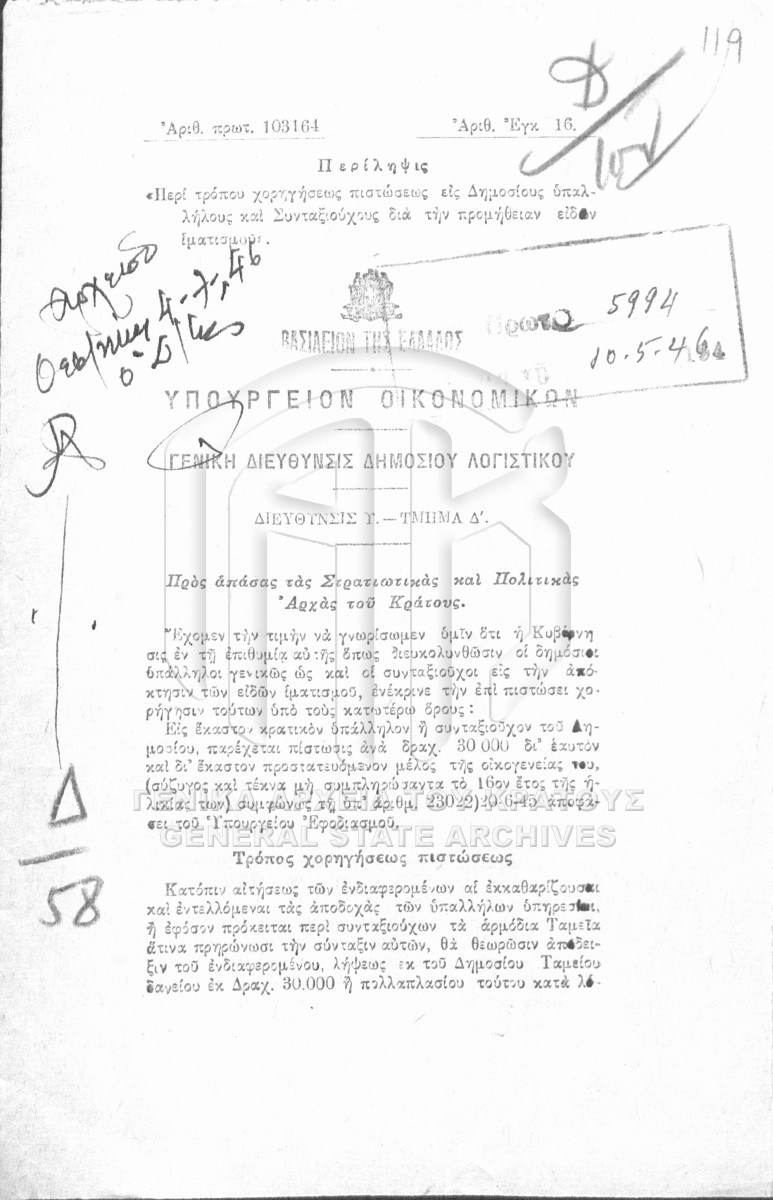 119
Ἀριθ. πρωτ. 103164 Ἀριθ. Ἐγκ 16.
Περίληψις
«Περὶ τρόπου χορηγήσεως πιστώσεως εἰς Δημοσίους ὑπαλ-
λήλους καὶ Συνταξιούχους διὰ τὴν προμήθειαν εἰδῶν
ἱματισμοῦ».
Ἀρχεῖον
4-7-46
5994
10-5-46
ΒΑΣΙΛΕΙΟΝ ΤΗΣ ΕΛΛΑΔΟΣ
ΥΠΟΥΡΓΕΙΟΝ ΟΙΚΟΝΟΜΙΚΩΝ
ΓΕΝΙΚΗ ΔΙΕΥΘΥΝΣΙΣ ΔΗΜΟΣΙΟΥ ΛΟΓΙΣΤΙΚΟΥ
ΔΙΕΥΘΥΝΣΙΣ Υ.—ΤΜΗΜΑ Δ'.
Πρὸς ἁπάσας τὰς Στρατιωτικὰς καὶ Πολιτικὰς
Ἀρχὰς τοῦ Κράτους.
Ἔχομεν τὴν τιμὴν νὰ γνωρίσωμεν ὑμῖν ὅτι ἡ Κυβέρνη
σις ἐν τῇ ἐπιθυμίᾳ αὐτῆς ὅπως διευκολυνθῶσιν οἱ δημόσιοι
ὑπάλληλοι γενικῶς ὡς καὶ οἱ συνταξιοῦχοι εἰς τὴν ἀπό-
κτησιν τῶν εἰδῶν ἱματισμοῦ, ἐνέκρινε τὴν ἐπὶ πιστώσει χο-
ρήγησιν τούτων ὑπὸ τοὺς κατωτέρω ὅρους :
Εἰς ἕκαστον κρατικὸν ὑπάλληλον ἢ συνταξιοῦχον τοῦ Δη-
μοσίου, παρέχεται πίστωσις ἀνὰ δραχ. 30 000 δι' ἑαυτὸν
καὶ δι' ἕκαστον προστατευόμενον μέλος τῆς οἰκογενείας του,
(σύζυγος καὶ τέκνα μὴ συμπληρώσαντα τὸ 16ον ἔτος τῆς ἡ-
λικίας των) συμφώνως τῇ ὑπ' ἀριθμ. 23022)20-6-45 ἀποφά-
σει τοῦ Ὑπουργείου Ἐφοδιασμοῦ.
ΓΕΝΙΚΑ ΑΡΧΕΙΑ ΤΟΥ ΚΡΑΤΟΥΣ
GENERAL STATE ARCHIVES
Τρόπος χορηγήσεως πιστώσεως
Κατόπιν αἰτήσεως τῶν ἐνδιαφερομένων αἱ ἐκκαθαρίζουσαι
καὶ ἐντελλόμεναι τὰς ἀποδοχὰς τῶν ὑπαλλήλων ὑπηρεσίαι,
ἢ ἐφόσον πρόκειται περὶ συνταξιούχων τὰ ἁρμόδια Ταμεῖα
ἅτινα πρηρώνωσι τὴν σύνταξιν αὐτῶν, θὰ θεωρῶσιν ἀπόδει-
ξιν τοῦ ἐνδιαφερομένου, λήψεως ἐκ τοῦ Δημοσίου Ταμείου
δανείου ἐκ Δραχ. 30.000 ἢ πολλαπλασίου τούτου κατὰ λό-
Δ
58